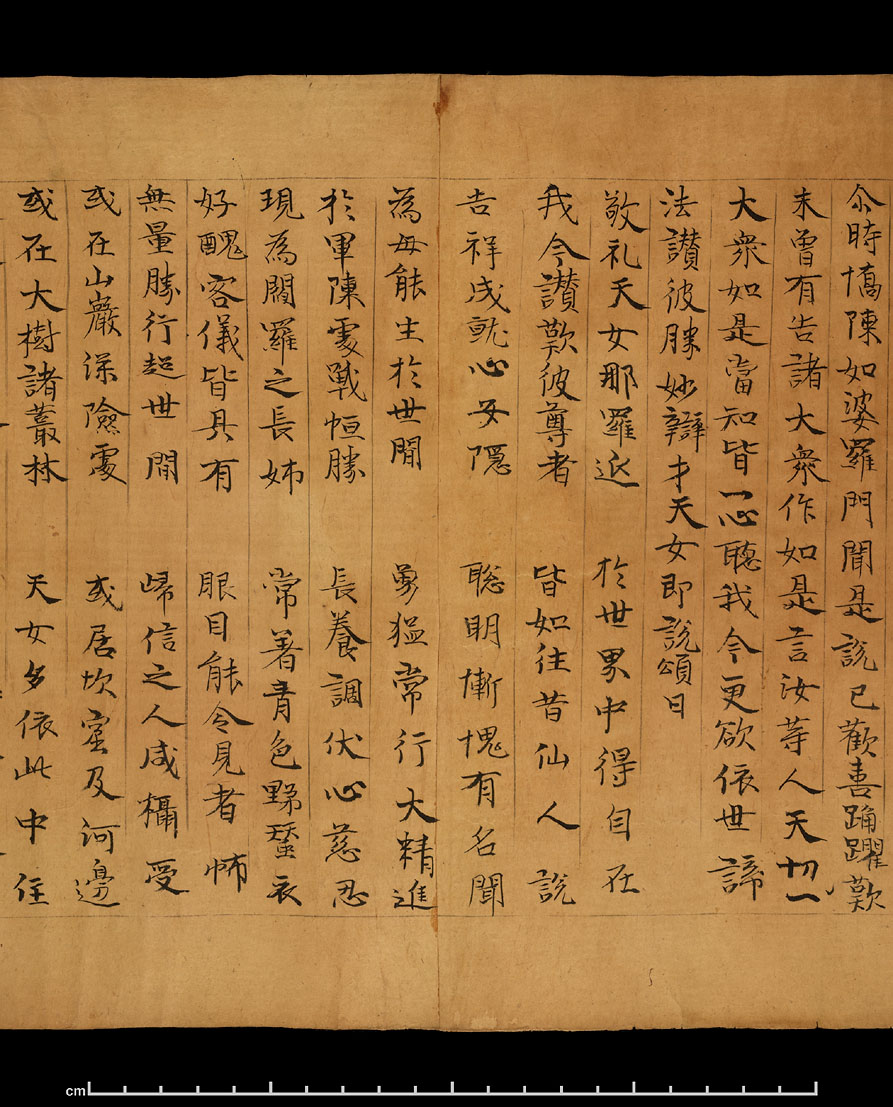 尒時憍陳如婆羅門聞是說已歡喜踊躍歎
未曾有告諸大衆作如是言汝等人天一切
大衆如是當知皆一心聽我今更欲依世諦
法讚彼勝妙辯才天女即說頌曰
敬礼天女那羅延 於世界中得自在
我今讚歎彼尊者 皆如往昔仙人說
吉祥成就心安隱 聡明慚愧有名聞
為母能生於世間 勇猛常行大精進
於軍陳處戰恒勝 長養調伏心慈忍
現為閻羅之長姊 常著青色野蠶衣
好醜容儀皆具有 眼目能令見者怖
無量勝行超世間 歸信之人咸攝受
或在山巖深險處 或居坎窟及河邊
或在大樹諸叢林 天女多依此中住
cm